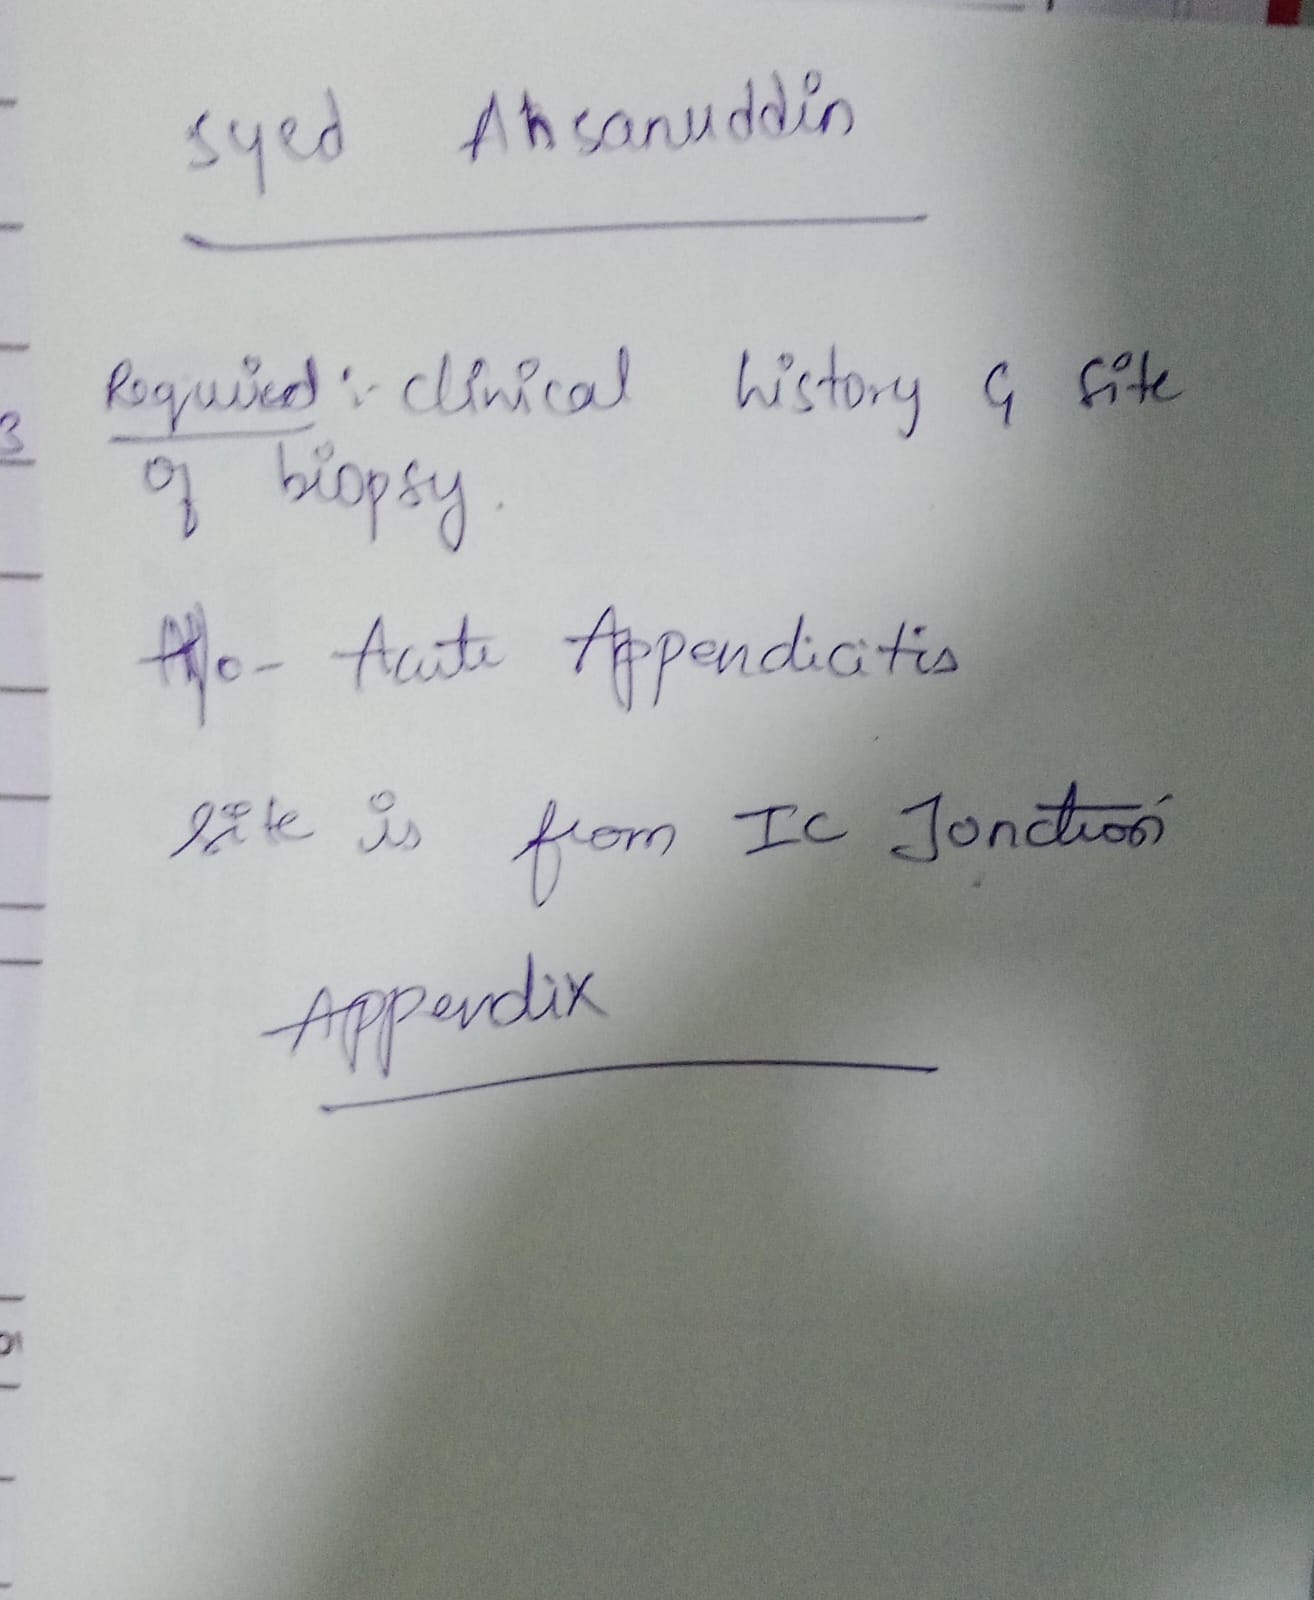 Syed Ahsanuddin
Required :- clinical history & site
of biopsy.
Acute Appendicitis
site is from IC Jonction
Appendix
3